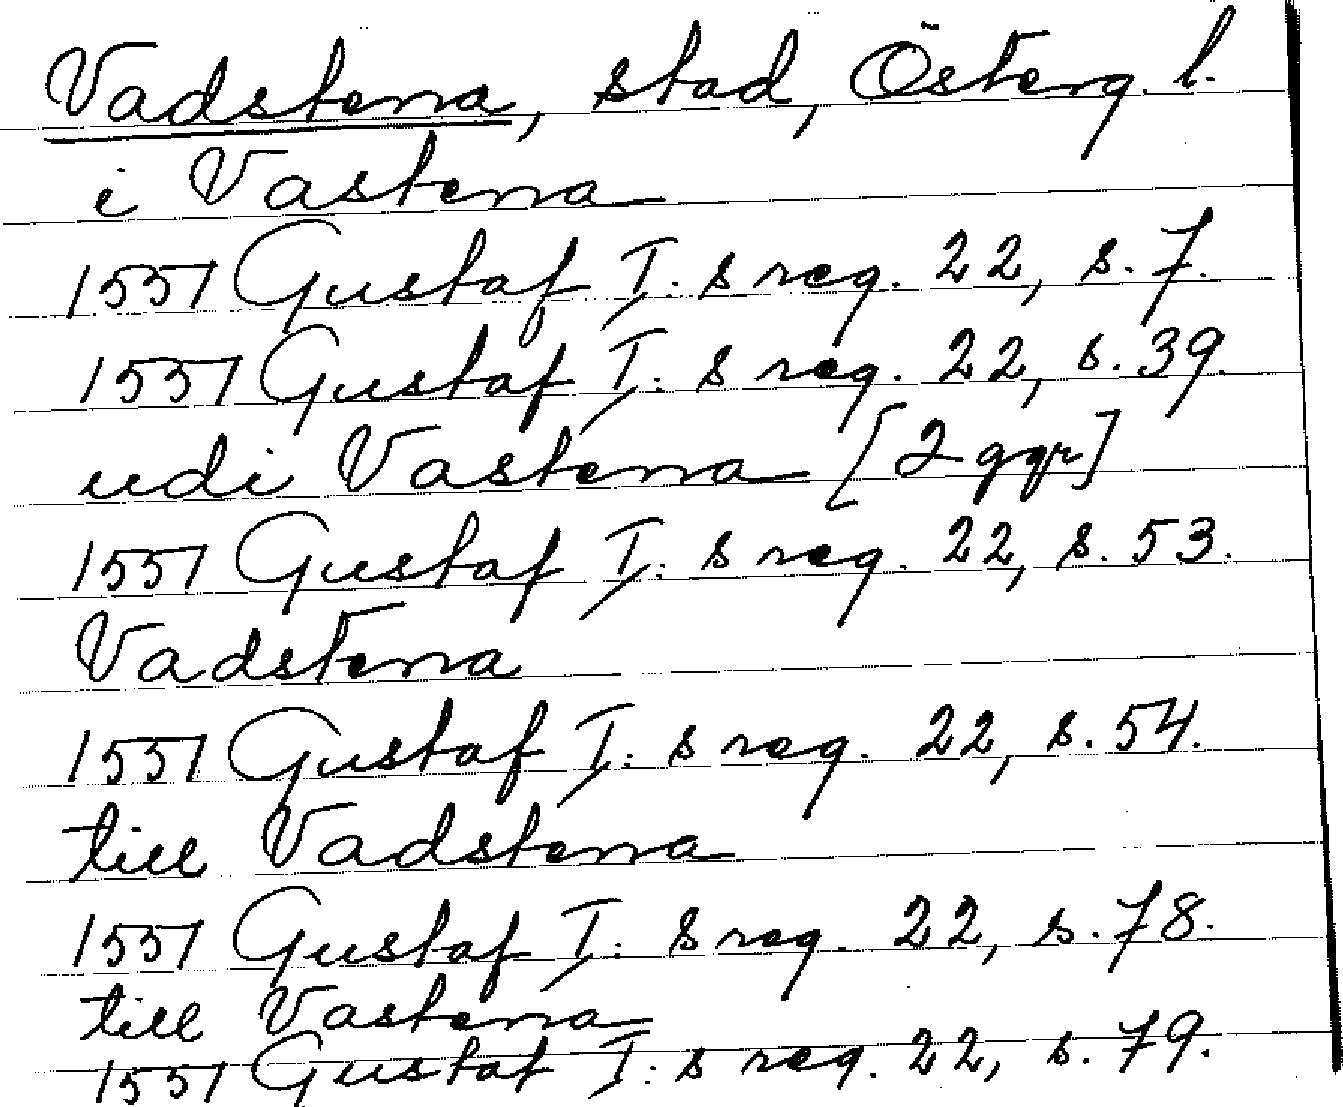 Vadstena, stad, Österg. l.
i Vastena
1551 Gustaf I:s reg. 22, s. 7.
1551 Gustaf I:s reg. 22, s. 39.
udi Vastena [2 ggr]
1551 Gustaf I:s reg. 22, s. 53.
Vadstena
1551 Gustaf I:s reg. 22, s. 54.
till Vadstena
1551 Gustaf I:s reg. 22, s. 78.
till Vastena
1551 Gustaf I:s reg. 22, s. 79.